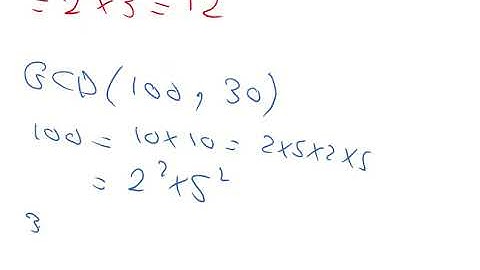 = 2² × 3 = 12
GCD(100, 30)
100 = 10×10 = 2×5×2×5
= 2²×5²
3